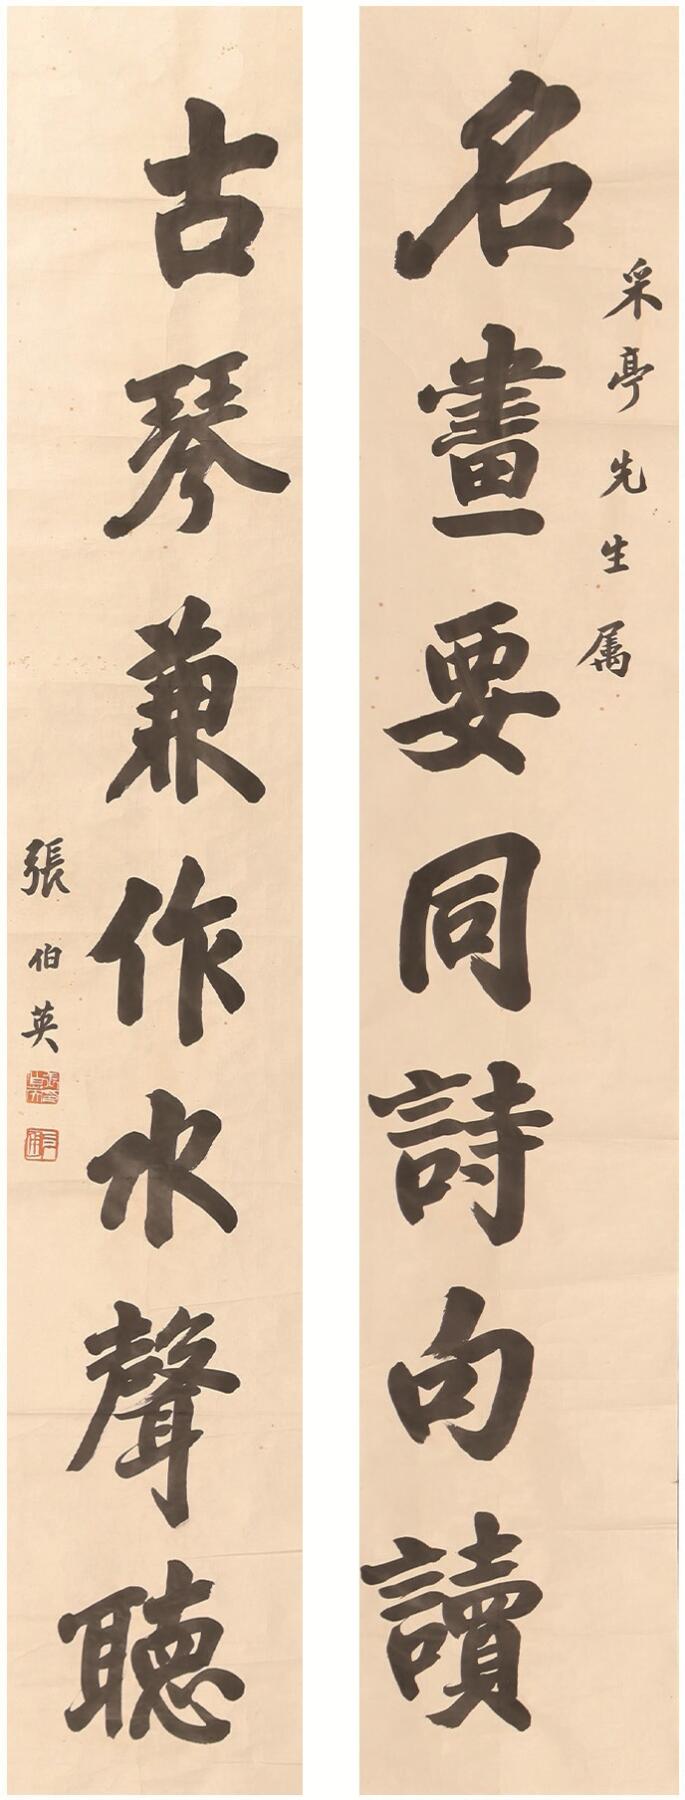 采亭先生属
名畫要同詩句讀
古琴兼作水聲聽
張伯英